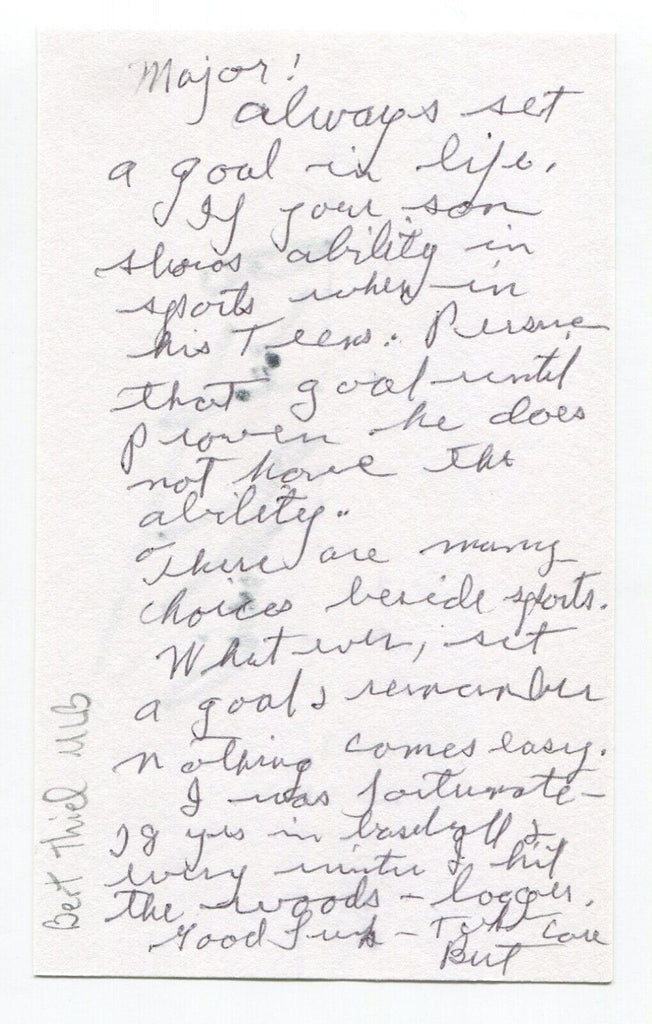 Major!
always set
a goal in life.
If your son
shows ability in
sports when in
his Teens. Persue
that goal until
proven he does
not have the
ability..
There are many
choices beside sports.
What ever, set
a goal & remember
nothing comes easy.
I was fortunate-
18 yrs in baseball &
every winter I hit
the woods - logger.
Good Luck - Take Care
Bert
Bert Thiel MLB